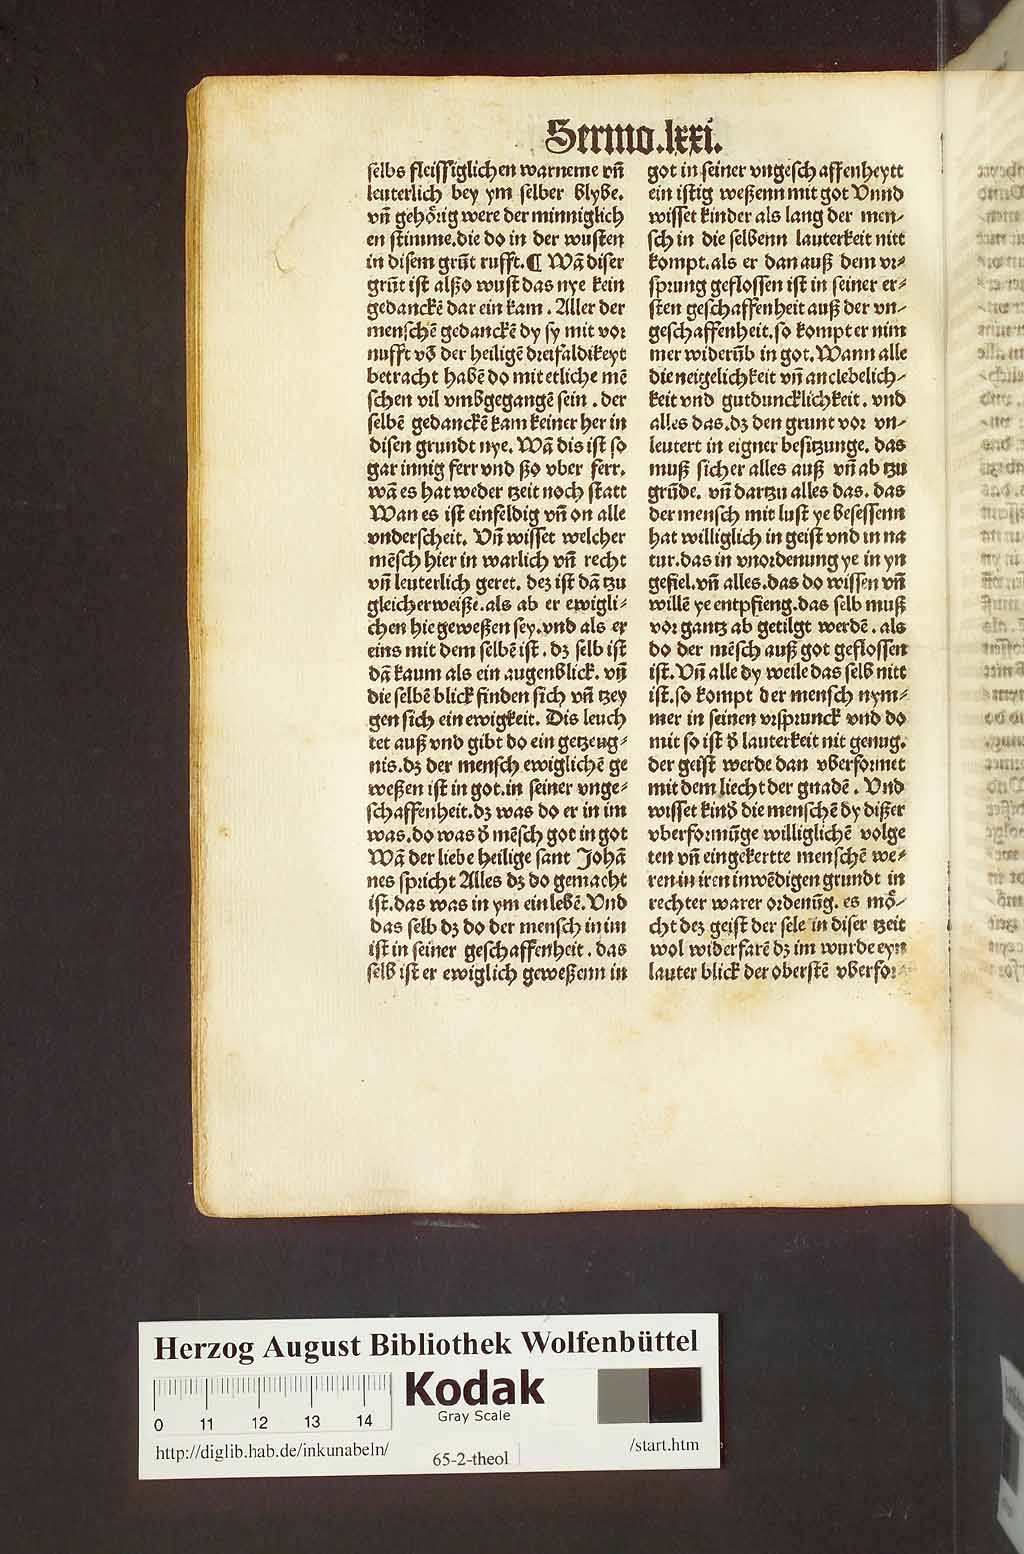 Sermo.lxxi.
selbs fleissiglichen warneme vñ
leuterlich bey ym selber blybe.
vñ gehörig were der minniglich
en stimme.die do in der wusten
in disem grūt rufft.¶ Wā diser
grūt ist alßo wust das nye kein
gedanckē dar ein kam. Aller der
menschē gedanckē dy sy mit vor
nufft vō der heiligē dreifaldikeyt
betracht habē do mit etliche mē
schen vil vmbgegangē sein. der
selbē gedanckē kam keiner her in
disen grundt nye. Wā dis ist so
gar innig ferr vnd ßo vber ferr.
wā es hat weder tzeit noch statt
Wan es ist einfeldig vñ on alle
vnderscheit. Vñ wisset welcher
mēsch hier in warlich vñ recht
vñ leuterlich geret. dez ist dā tzu
gleicherweiße.als ab er ewigli-
chen hie geweßen sey.vnd als er
eins mit dem selbē ist. dz selb ist
dā kaum als ein augenblick. vñ
die selbē blick finden sich vñ tzey
gen sich ein ewigkeit. Dis leuch
tet auß vnd gibt do ein getzeug-
nis.dz der mensch ewiglichē ge
weßen ist in got.in seiner vnge-
schaffenheit.dz was do er in im
was.do was d̄ mēsch got in got
Wā der liebe heilige sant Johā
nes spricht Alles dz do gemacht
ist.das was in ym ein lebē. Vnd
das selb dz do der mensch in im
ist in seiner geschaffenheit. das
selb ist er ewiglich geweßenn in
got in seiner vngeschaffenheytt
ein istig weßenn mit got Vnnd
wisset kinder als lang der men-
sch in die selbenn lauterkeit nitt
kompt.als er dan auß dem vr-
sprung geflossen ist in seiner er-
sten geschaffenheit auß der vn-
geschaffenheit.so kompt er nim
mer widerūb in got.Wann alle
die neigelichkeit vñ anclebelich-
keit vnd gutduncklichkeit. vnd
alles das.dz den grunt vor vn-
leutert in eigner besitzunge. das
muß sicher alles auß vñ ab tzu
grūde. vñ dartzu alles das. das
der mensch mit lust ye besessenn
hat williglich in geist vnd in na
tur.das in vnordenung ye in yn
gefiel.vñ alles.das do wissen vñ
willē ye entpfieng.das selb muß
vor gantz ab getilgt werdē. als
do der mēsch auß got geflossen
ist. Vñ alle dy weile das selb nitt
ist.so kompt der mensch nym-
mer in seinen vrsprunck vnd do
mit so ist d̄ lauterkeit nit genug.
der geist werde dan vberformet
mit dem liecht der gnadē. Vnd
wisset kind̄ die menschē dy dißer
vberformūge williglichē volge
ten vñ eingekertte menschē we-
ren in iren inwēdigen grundt in
rechter warer ordenūg. es mö-
cht dez geist der sele in diser tzeit
wol widerfarē dz im wurde eyn
lauter blick der oberstē vberfor-
Herzog August Bibliothek Wolfenbüttel
0 11 12 13 14
Kodak
Gray Scale
http://diglib.hab.de/inkunabeln/
65-2-theol
/start.htm